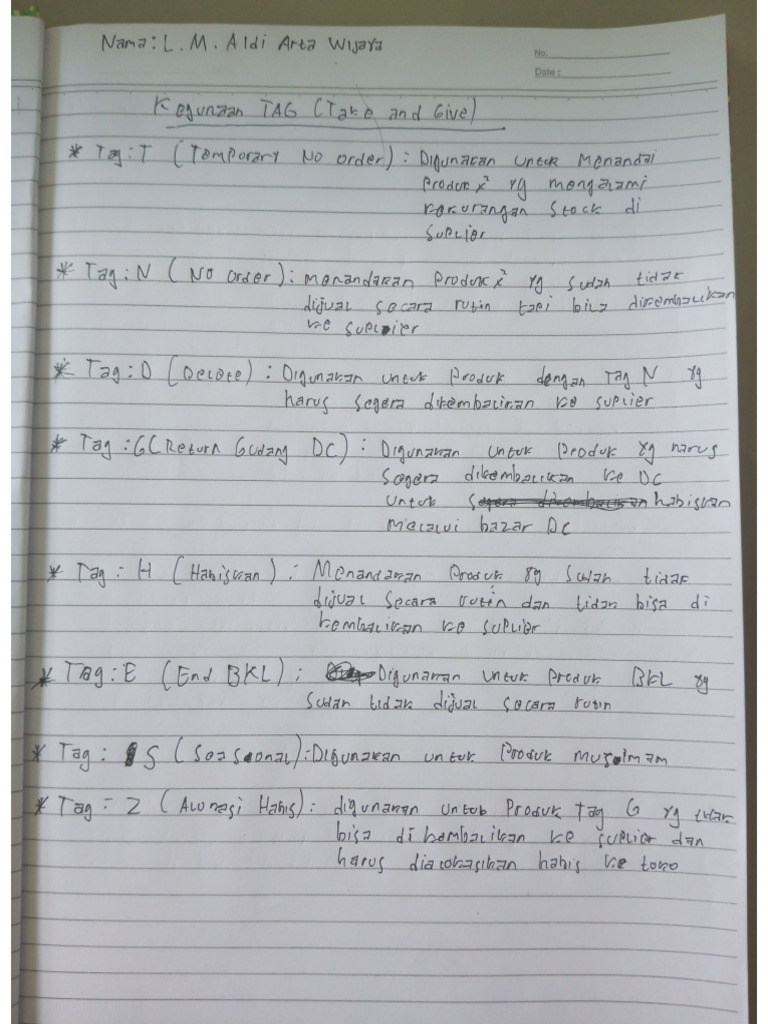 Nama: L. M. Aldi Arta Wijaya
No.
Date:
Kegunaan TAG (Take and Give)
* Tag: T (Temporary No Order): Digunakan untuk menandai
Produk x² yg mengalami
kekurangan stock di
suplier
* Tag: N (No Order): menandakan Produk x² yg sudah tidak
dijual secara rutin tapi bisa dikembalikan
ke suplier
* Tag: D (Delete): Digunakan untuk Produk dengan Tag N yg
harus segera dikembalikan ke suplier
* Tag: G (Return Gudang DC): Digunakan untuk Produk yg harus
Segera dikembalikan ke DC
untuk segera dikembalikan habiskan
Melalui bazar DC
* Tag: H (Habiskan): Menandakan Produk yg sudah tidak
dijual secara rutin dan tidak bisa di
kembalikan ke suplier
* Tag: E (End BKL): Digunakan untuk Produk BKL yg
sudah tidak dijual secara rutin
* Tag: S (Seasional): Digunakan untuk Produk musiman
* Tag: Z (Alokasi Habis): digunakan untuk Produk Tag G yg tidak
bisa di kembalikan ke suplier dan
harus dialokasikan habis ke toko